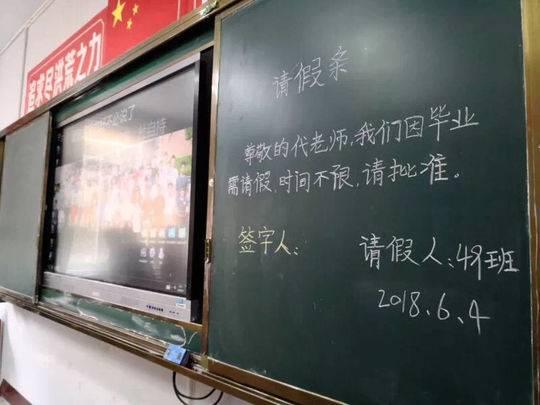 追求尽洪荒之力
请假条
尊敬的代老师,我们因毕业
需请假,时间不限,请批准。
签字人:
请假人:49班
2018.6.4